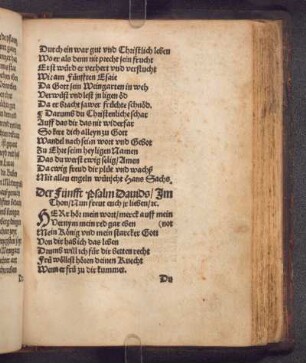 Durch ein war gut vnd Christlich leben
Wo er als denn nit precht sein frücht
Erst würd er verhert vnd verflucht
Wie am Fünfften Esaie
Da Gott sein Weingarten in weh
Verwüst vnd lest jn ligen öd
Da er bracht sawer früchte schnöd.
Darumb du Christenliche schar
Auff das dir das nit widerfar
So kere dich alleyn zu Gott
Wandel nach seim wort vnd Gebot
Zu Ehre seim heyligen Namen
Das du werst ewig selig / Amen
Da ewig freud dir plüe vnd wachs
Mit allen engeln wünscht Hans Sachs.
Der Fünfft Psalm Dauids / Im
Thon / Nun frewt euch je lieben / rc.
HERr hör mein wort / merck auff mein
Vernym mein red gar eben (not
Mein König vnd mein starcker Gott
Von dir hab ich das leben
Drumb will ich für dir betten recht
Frü wöllest hören deinen Knecht
Wenn er frü zu dir kumme.
Du